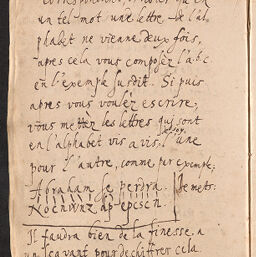 un tel mot une lettre de l'al
phabet ne vienne deux fois,
apres cela vous composez l'abc
en l'exemple susdit. Si puis
apres vous voulez escrire,
vous mettez les lettres qui sont
en l'alphabet vis a vis, l'une
pour l'autre, comme per exemple,
Abraham se perdra. Je mets.
Il faudra bien de la finesse a
un sçavant pour dechiffrer cela